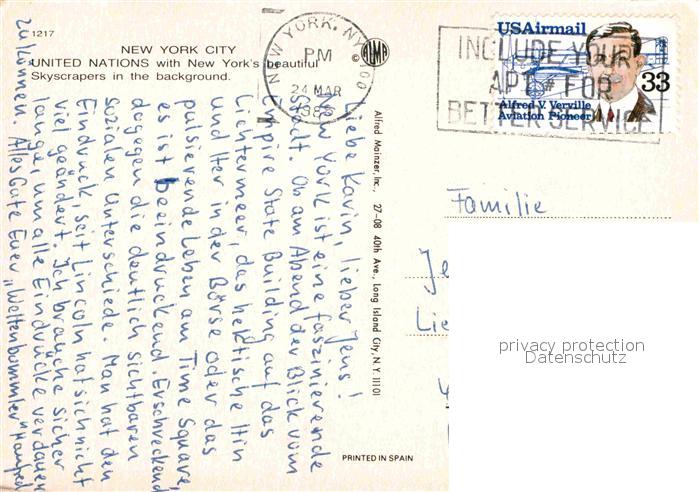 1217
NEW YORK CITY
UNITED NATIONS with New York's beautiful
Skyscrapers in the background.
Liebe Karin, lieber Jens!
New York ist eine faszinierende
Stadt. Ob am Abend der Blick vom
Empire State Building auf das
Lichtermeer, das hektische Hin
und Her in der Börse oder das
pulsierende Leben am Time Square,
es ist beeindruckend. Erschreckend
dagegen die deutlich sichtbaren
sozialen Unterschiede. Man hat den
Eindruck, seit Lincoln hat sich nicht
viel geändert. Ich brauche sicher
lange, um alle Eindrücke verdauen
zu können. Alles Gute Euer „Weltenbummler" Manfred
NEW YORK, NY 100
PM
24 MAR
© ALMA
Alfred Mainzer, Inc., 27-08 40th Ave., Long Island City, N.Y. 11101
PRINTED IN SPAIN
INCLUDE YOUR
APT # FOR
BETTER SERVICE
USAirmail
33
Alfred V. Verville
Aviation Pioneer
Familie
Je
Lie
privacy protection
Datenschutz